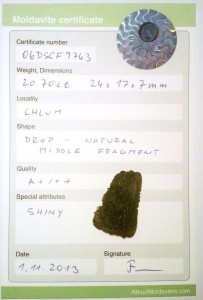 Moldavite certificate
Certificate number
06DSCF7763
Weight, Dimensions
20.70ct 24x17x7mm
Locality
CHLUM
Shape
DROP - NATURAL
MIDDLE FRAGMENT
Quality
A+/++
Special attributes
SHINY
Date
Signature
1.11.2013